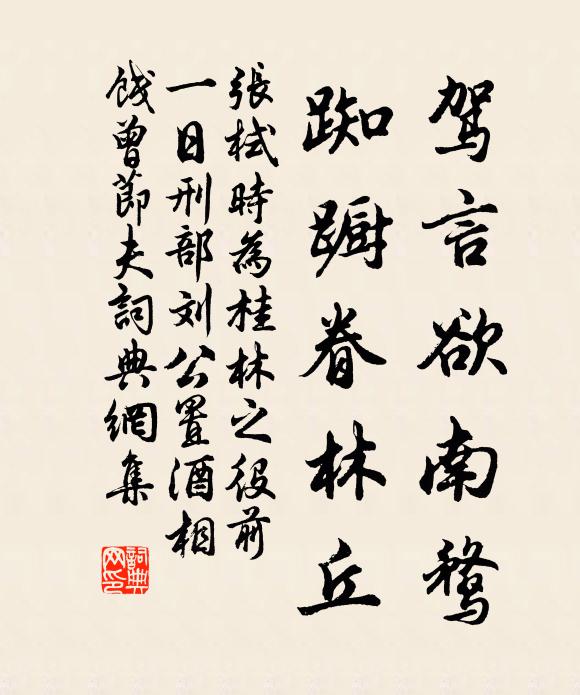 驾言欲南鶩
踟蹰眷林丘
張栻時為桂林之役前
一日刑部刘公置酒相
餞曾節夫詞典網集
詞典网印